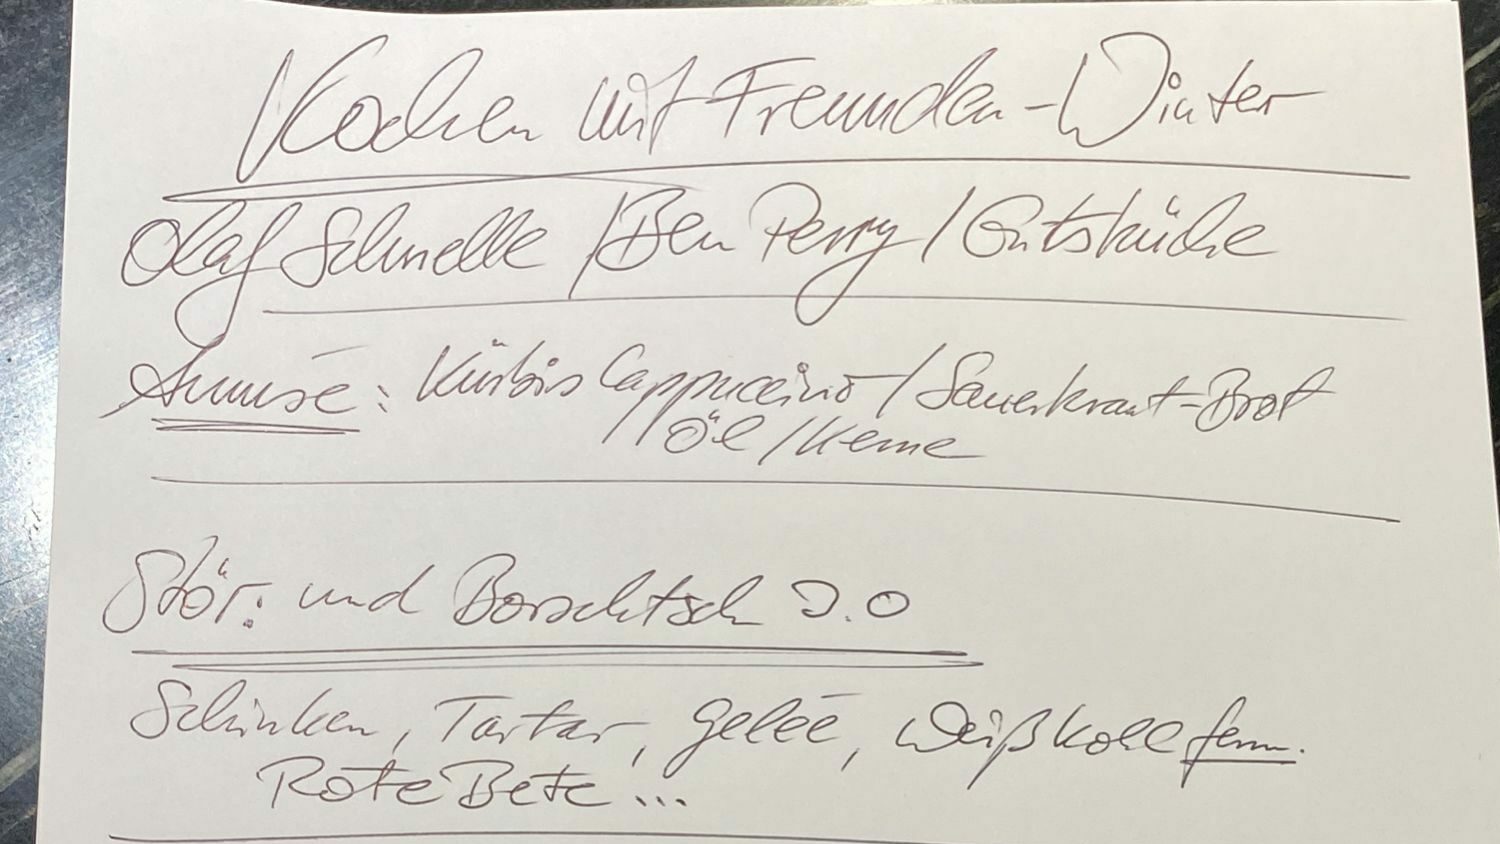 Kochen mit Freunden - Winter
Olaf Schnelle / Ben Perry / Gutsküche
Amusé: Kürbis Cappuccino / Sauerkraut-Brot
Öl / Kerne
Stör: und Borschtsch 2.0
Schinken, Tartar, Geleé, Weißkohl ferm.
Rote Bete ...